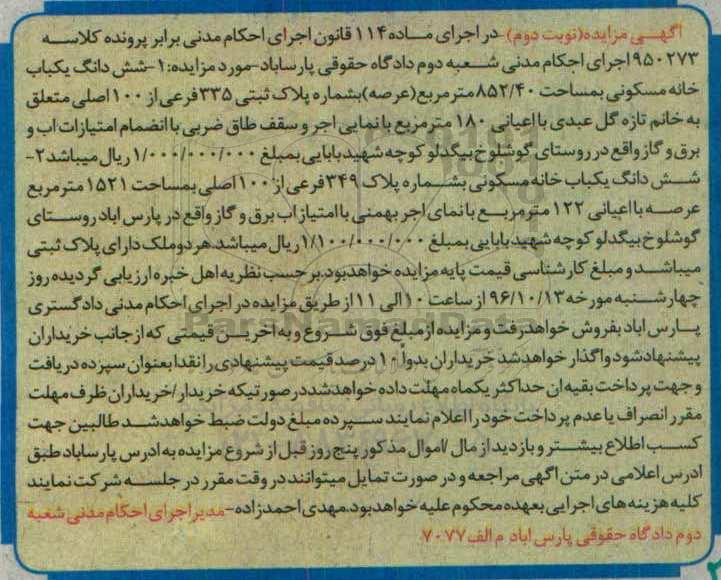 آگهی مزایده(نوبت دوم)-در اجرای ماده ۱۱۴ قانون اجرای احکام مدنی برابر پرونده کلاسه
۹۵۰۲۷۳ اجرای احکام مدنی شعبه دوم دادگاه حقوقی پارساباد-مورد مزایده:۱-شش دانگ یکباب
خانه مسکونی بمساحت ۸۵۲/۴۰ متر مربع(عرصه)بشماره پلاک ثبتی ۳۳۵ فرعی از ۱۰۰ اصلی متعلق
به خانم تازه گل عبدی با اعیانی ۱۸۰ مترمربع با نمایی اجر و سقف طاق ضربی با انضمام امتیازات اب و
برق و گاز واقع در روستای گوشلوخ بیگدلو کوچه شهید بابایی بمبلغ ۱/۰۰۰/۰۰۰/۰۰۰ ریال میباشد ۲-
شش دانگ یکباب خانه مسکونی بشماره پلاک ۳۴۹ فرعی از ۱۰۰ اصلی بمساحت ۱۵۲۱ مترمربع
عرصه با اعیانی ۱۲۲ مترمربع با نمای اجر بهمنی با امتیاز اب برق و گاز واقع در پارس اباد روستای
گوشلوخ بیگدلو کوچه شهید بابایی بمبلغ ۱/۱۰۰/۰۰۰/۰۰۰ ریال میباشد.هر دو ملک دارای پلاک ثبتی
میباشد و مبلغ کارشناسی قیمت پایه مزایده خواهد بود.بر حسب نظریه اهل خبره ارزیابی گردیده روز
چهارشنبه مورخه ۹۶/۱۰/۱۳ از ساعت ۱۰ الی ۱۱ از طریق مزایده در اجرای احکام مدنی دادگستری
پارس اباد بفروش خواهد رفت و مزایده از مبلغ فوق شروع و به اخرین قیمتی که از جانب خریداران
پیشنهاد شود واگذار خواهد شد خریداران بدواً ۱۰ درصد قیمت پیشنهادی را نقدا بعنوان سپرده دریافت
و جهت پرداخت بقیه ان حداکثر یکماه مهلت داده خواهد شد در صورتیکه خریدار/خریداران ظرف مهلت
مقرر انصراف یا عدم پرداخت خود را اعلام نمایند سپرده مبلغ دولت ضبط خواهد شد طالبین جهت
کسب اطلاع بیشتر و بازدید از مال /اموال مذکور پنج روز قبل از شروع مزایده به ادرس پارساباد طبق
ادرس اعلامی در متن اگهی مراجعه و در صورت تمایل میتوانند در وقت مقرر در جلسه شرکت نمایند
کلیه هزینه های اجرایی بعهده محکوم علیه خواهد بود.مهدی احمدزاده-مدیر اجرای احکام مدنی شعبه
دوم دادگاه حقوقی پارس اباد م الف ۷۰۷۷
ParsNamadData